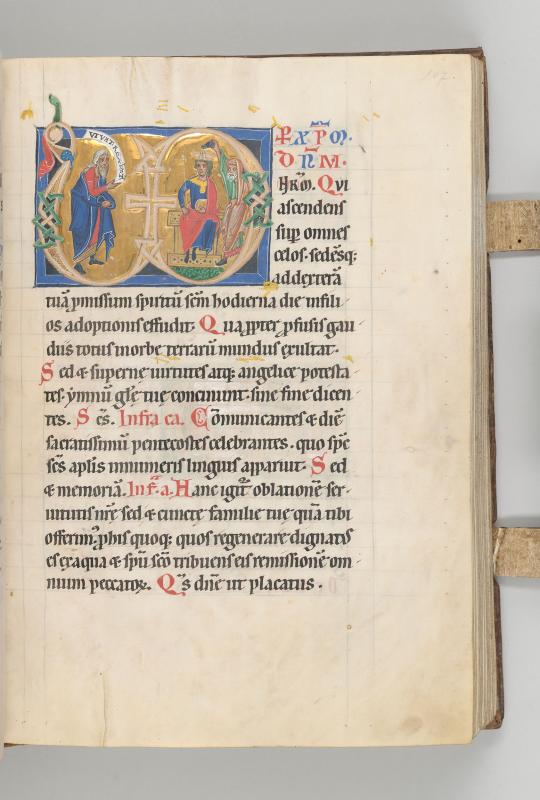 P̄ XP̄M.
DN̄M.
N̄RM̄. Qui
ascendens
sup omnes
celos. sedēsq;
ad dexterā
tuā ꝓmissum spiritū sc̄m hodierna die in fili
os adoptionis effudit. Quapp̱ter ꝓfusis gau
diis totus in orbe terrarū mundus exultat.
Sed & superne uirtutes atq; angelice potesta
tes. ymnū gl̄e tue concinunt. sine fine dicen
tes. Sc̄s. Infra ca. Cōmunicantes & diē
sacratissimū pentecostes celebrantes. quo sp̄c
sc̄s apl̄is innumeris linguis apparuit. Sed
& memoriā. Inf̄. a. Hanc igit̄ oblationē ser
uitutis nr̄e sed & cuncte familie tue quā tibi
offerim᷒. ꝓ his quoq; quos regenerare dignat᷒
es ex aqua & sp̄u sc̄o tribuens eis remissionē om
nium peccatoꝝ. Qs̄ dn̄e ut placatus.